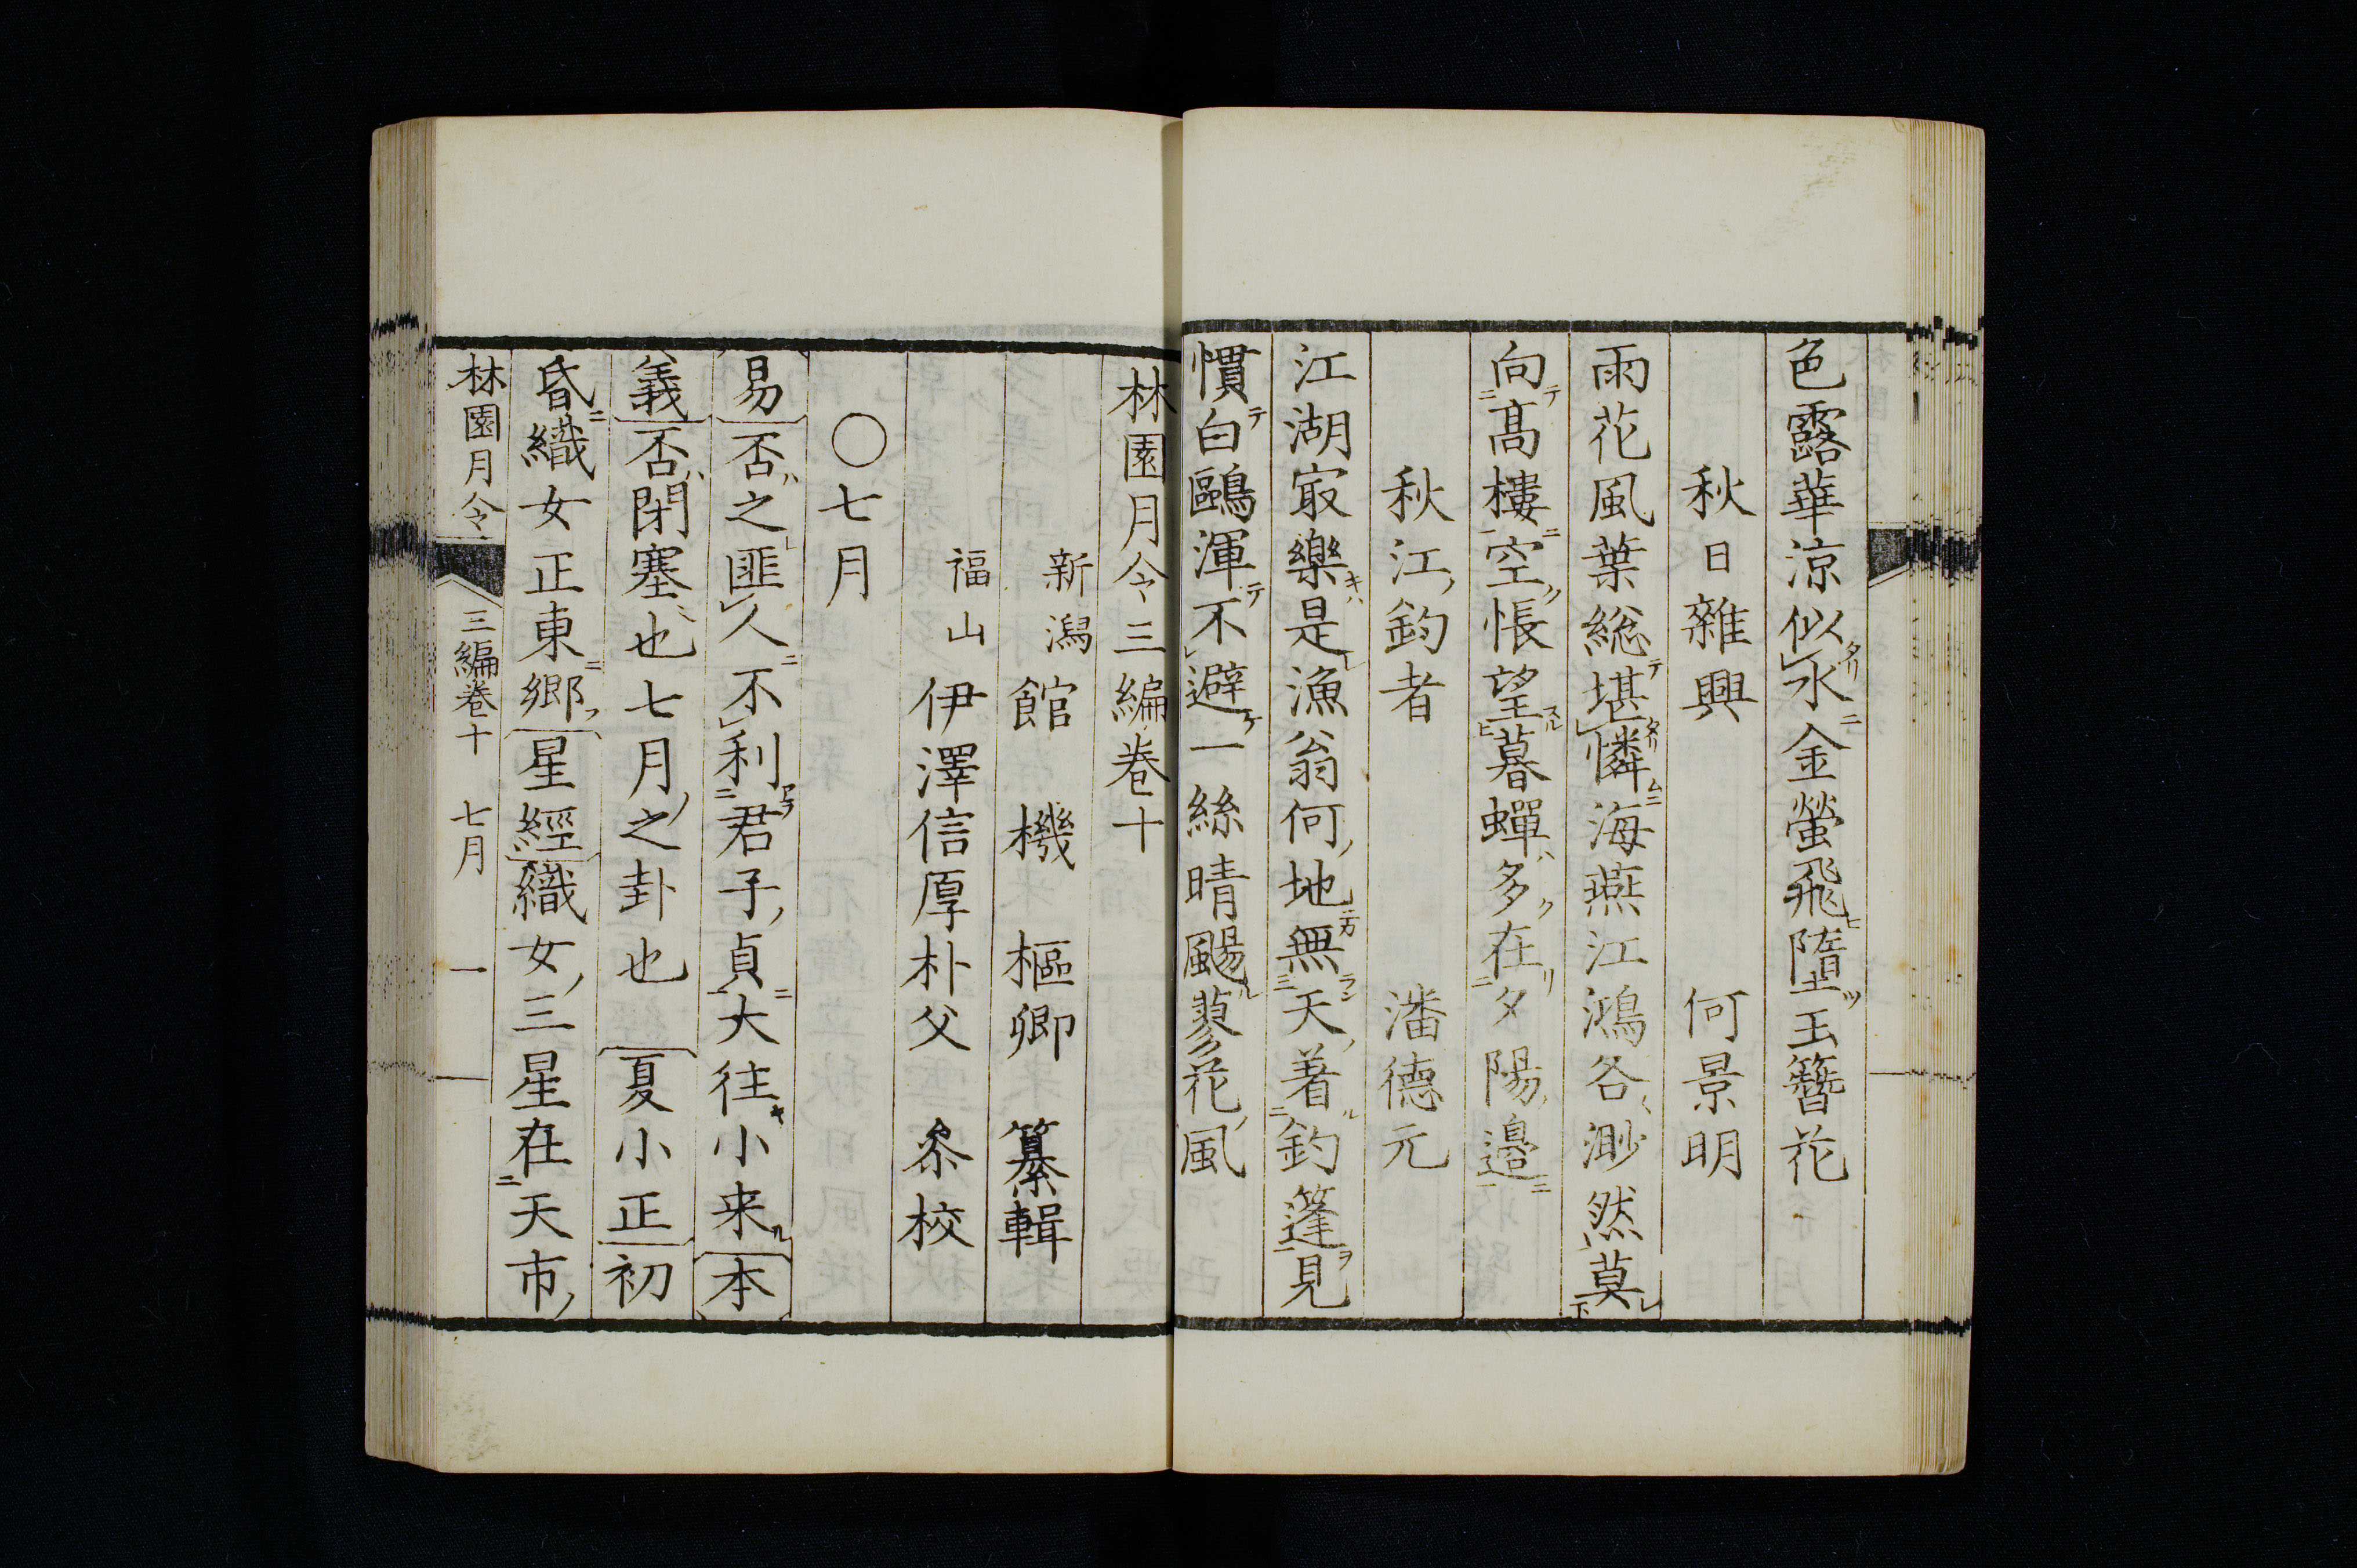 色露華涼似水金螢飛墮玉簪花
秋日雜興 何景明
雨花風葉総堪憐海燕江鴻各渺然莫
向髙樓空悵望暮蟬多在夕陽邉
秋江釣者 潘德元
江湖㝡樂是漁翁何地無天着釣篷見
慣白鷗渾不避一絲晴颺蓼花風
林園月令三編卷十
新潟 館 機 樞卿 纂輯
福山 伊澤信厚朴父 叅校
〇七月
易否之匪人不利君子貞大往小来本
義否閉塞也七月之卦也 夏小正初
昏織女正東鄉星經織女三星在天市
林園月令 三編卷十 七月 一